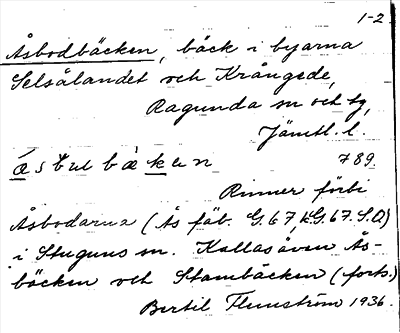 1-2.
Åsbodbäcken, bäck i byarna
Selsålandet och Krångede,
Ragunda sn och tg,
Jämtl. l.
789.
Rinner förbi
Åsbodarna (Ås fäb. G. 67, kG. 67. S.O)
i Stuguns sn. Kallas även Ås-
bäcken och Stambäcken (forts.)
Bertil Flemström 1936.